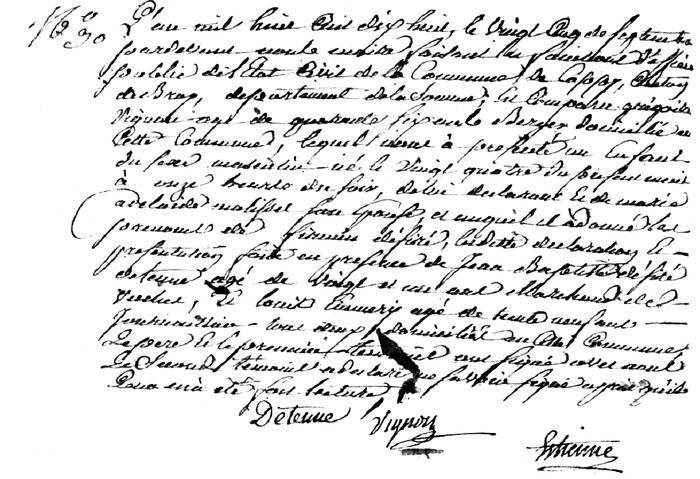 N° 30
L'an mil huit Cent dix huit, le vingt Cinq de Septembre
pardevant nous maire faisant les fonctions d'officier
publie de l'Etat Civil de la Commune de Cappy, Canton
de Bray, departement de la Somme, est Comparu grégoire
Vignon agé de quarante six ans Berger domicilié en
Cette Commune, lequel nous à presenté un Enfant
du sexe masculin né le vingt quatre du présent mois
à onze heures du soir, de lui declarant Et de marie
adelaide malisset son Epouse, et auquel il a donné les
prenoms de firmin désiré, les dittes declaration Et
presentation faite en presence de Jean Baptiste desiré
detenne agé de vingt et un ans Marchand de
et Louis agé de trente neuf ans
Journallier tous deux domiciliés en Cette Commune,
Le pere et le premier temoins ont signé avec nous
Le Second temoins a declaré ne savoir signé apres qu'il
Leur en à été fait lecture
Detenne Vignon